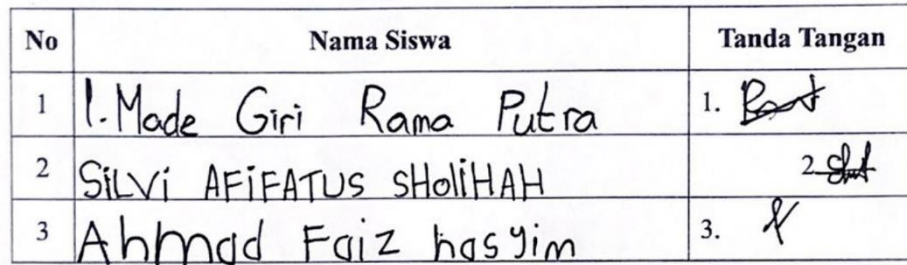 No Nama Siswa Tanda Tangan
1 I. Made Giri Rama Putra 1.
2 SiLVi AFiFATUS SHoliHAH 2
3 Ahmad Faiz hasyim 3.